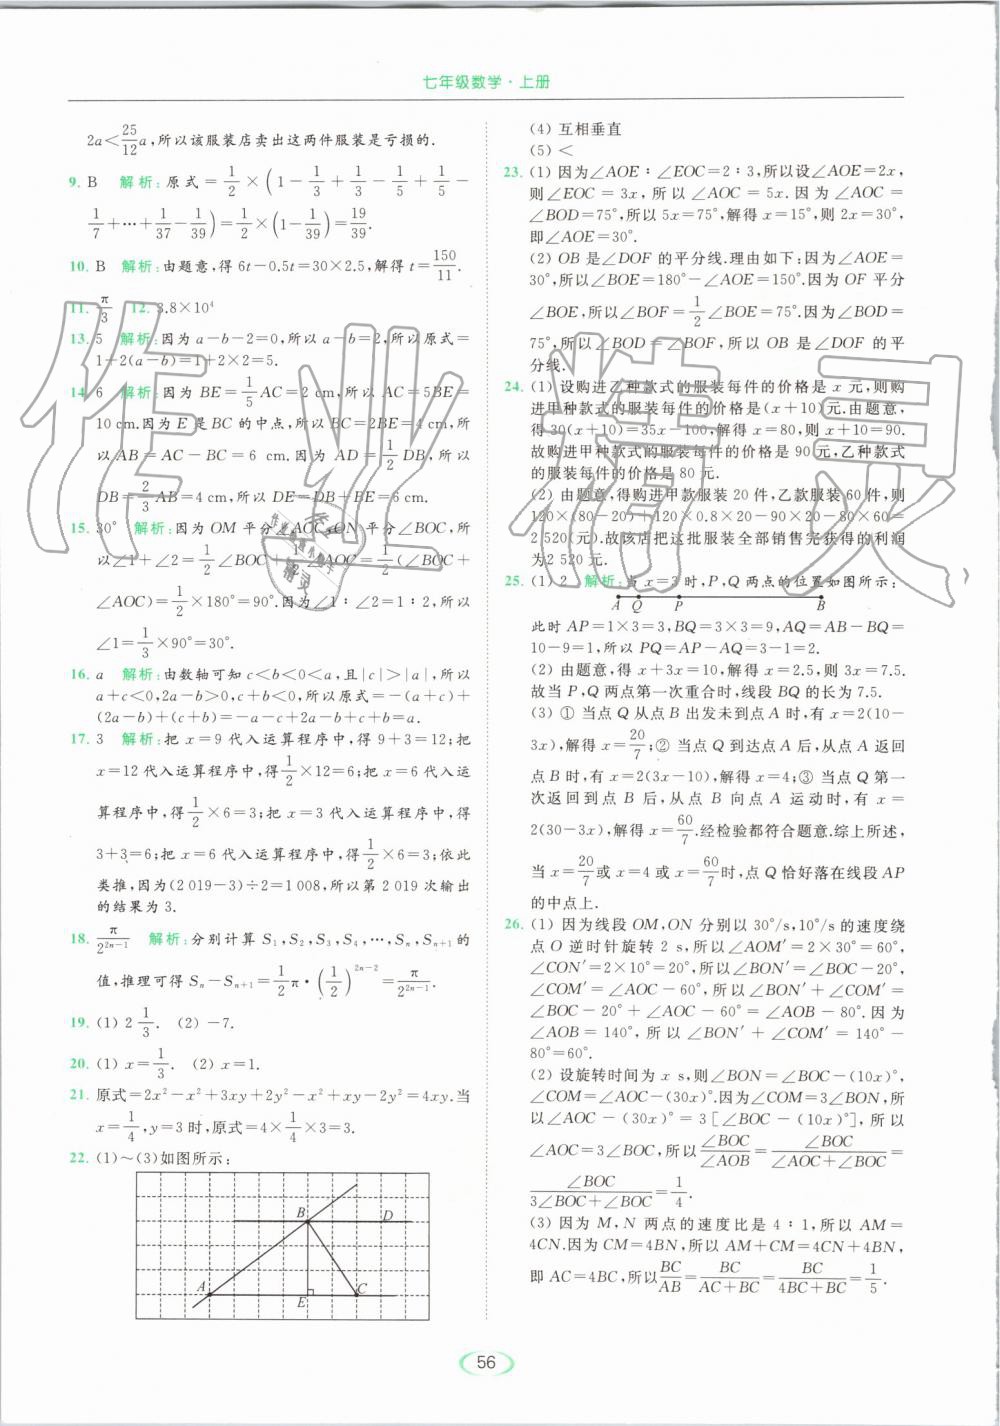 七年级数学·上册
2a<25/12a,所以该服装店卖出这两件服装是亏损的.
9. B 解析:原式=1/2×(1-1/3+1/3-1/5+1/5-
1/7+…+1/37-1/39)=1/2×(1-1/39)=19/39.
10. B 解析:由题意,得6t-0.5t=30×2.5,解得t=150/11.
11. π/3 12. 3.8×10⁴
13. 5 解析:因为a-b-2=0,所以a-b=2,所以原式=
1+2(a-b)=1+2×2=5.
14. 6 解析:因为BE=1/5AC=2 cm,所以AC=5BE=
10 cm.因为E是BC的中点,所以BC=2BE=4 cm,所
以AB=AC-BC=6 cm.因为AD=1/2DB,所以
DB=2/3AB=4 cm,所以DE=DB+BE=6 cm.
15. 30° 解析:因为OM平分∠AOC,ON平分∠BOC,所
以∠1+∠2=1/2∠BOC+1/2∠AOC=1/2(∠BOC+
∠AOC)=1/2×180°=90°.因为∠1∶∠2=1∶2,所以
∠1=1/3×90°=30°.
16. a 解析:由数轴可知c<b<0<a,且|c|>|a|,所以
a+c<0,2a-b>0,c+b<0,所以原式=-(a+c)+
(2a-b)+(c+b)=-a-c+2a-b+c+b=a.
17. 3 解析:把x=9代入运算程序中,得9+3=12;把
x=12代入运算程序中,得1/2×12=6;把x=6代入运
算程序中,得1/2×6=3;把x=3代入运算程序中,得
3+3=6;把x=6代入运算程序中,得1/2×6=3;依此
类推,因为(2 019-3)÷2=1 008,所以第2 019次输出
的结果为3.
18. π/2²ⁿ⁻¹ 解析:分别计算S₁,S₂,S₃,S₄,…,Sₙ,Sₙ₊₁的
值,推理可得Sₙ-Sₙ₊₁=1/2π·(1/2)²ⁿ⁻²=π/2²ⁿ⁻¹.
19. (1) 2 1/3. (2) -7.
20. (1) x=1/3. (2) x=1.
21. 原式=2x²-x²+3xy+2y²-x²+xy-2y²=4xy.当
x=1/4,y=3时,原式=4×1/4×3=3.
22. (1)~(3)如图所示:
B D
A E C
(4) 互相垂直
(5) <
23. (1) 因为∠AOE∶∠EOC=2∶3,所以设∠AOE=2x,
则∠EOC=3x,所以∠AOC=5x.因为∠AOC=
∠BOD=75°,所以5x=75°,解得x=15°,则2x=30°,
即∠AOE=30°.
(2) OB是∠DOF的平分线.理由如下:因为∠AOE=
30°,所以∠BOE=180°-∠AOE=150°.因为OF平分
∠BOE,所以∠BOF=1/2∠BOE=75°.因为∠BOD=
75°,所以∠BOD=∠BOF,所以OB是∠DOF的平
分线.
24. (1) 设购进乙种款式的服装每件的价格是x元,则购
进甲种款式的服装每件的价格是(x+10)元.由题意,
得30(x+10)=35x-100,解得x=80,则x+10=90.
故购进甲种款式的服装每件的价格是90元,乙种款式
的服装每件的价格是80元.
(2) 由题意,得购进甲款服装20件,乙款服装60件,则
120×(80-20)+120×0.8×20-90×20-80×60=
2 520(元).故该店把这批服装全部销售完获得的利润
为2 520元.
25. (1) 2 解析:当x=3时,P,Q两点的位置如图所示:
A Q P B
此时AP=1×3=3,BQ=3×3=9,AQ=AB-BQ=
10-9=1,所以PQ=AP-AQ=3-1=2.
(2) 由题意,得x+3x=10,解得x=2.5,则3x=7.5.
故当P,Q两点第一次重合时,线段BQ的长为7.5.
(3) ① 当点Q从点B出发未到点A时,有x=2(10-
3x),解得x=20/7;② 当点Q到达点A后,从点A返回
点B时,有x=2(3x-10),解得x=4;③ 当点Q第一
次返回到点B后,从点B向点A运动时,有x=
2(30-3x),解得x=60/7.经检验都符合题意.综上所述,
当x=20/7或x=4或x=60/7时,点Q恰好落在线段AP
的中点上.
26. (1) 因为线段OM,ON分别以30°/s,10°/s的速度绕
点O逆时针旋转2 s,所以∠AOM′=2×30°=60°,
∠CON′=2×10°=20°,所以∠BON′=∠BOC-20°,
∠COM′=∠AOC-60°,所以∠BON′+∠COM′=
∠BOC-20°+∠AOC-60°=∠AOB-80°.因为
∠AOB=140°,所以∠BON′+∠COM′=140°-
80°=60°.
(2) 设旋转时间为x s,则∠BON=∠BOC-(10x)°,
∠COM=∠AOC-(30x)°.因为∠COM=3∠BON,所
以∠AOC-(30x)°=3[∠BOC-(10x)°],所以
∠AOC=3∠BOC,所以∠BOC/∠AOB=∠BOC/(∠AOC+∠BOC)=
∠BOC/(3∠BOC+∠BOC)=1/4.
(3) 因为M,N两点的速度比是4∶1,所以AM=
4CN.因为CM=4BN,所以AM+CM=4CN+4BN,
即AC=4BC,所以BC/AB=BC/(AC+BC)=BC/(4BC+BC)=1/5.
56
作业精灵